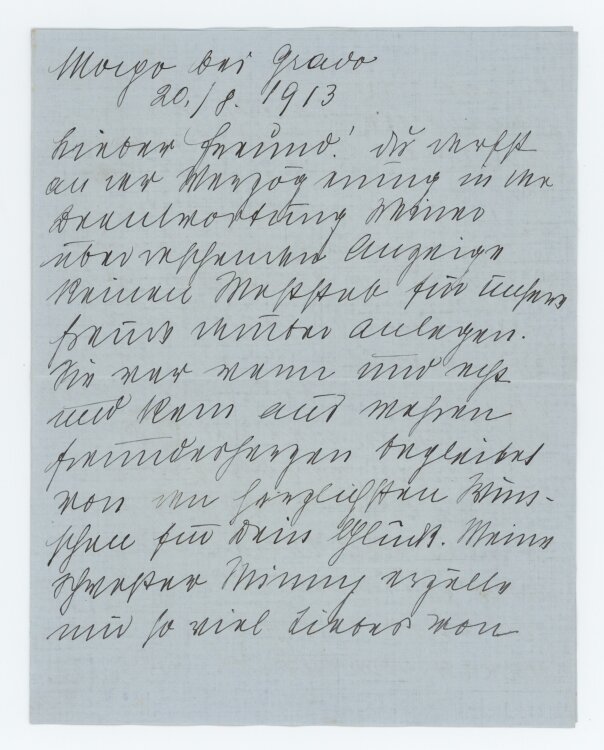 Morgo bei Grado
20./8. 1913
Lieber Freund! Du darfst
an der Verzögerung in der
Beantwortung Deiner
überraschenden Anzeige
keinen Maßstab für unsere
Freude darüber anlegen.
Sie war warm und echt
und kam aus wahren
Freundesherzen begleitet
von den herzlichsten Wün-
schen für Dein Glück. Meine
Schwester Minny erzälte
mir so viel Liebes von